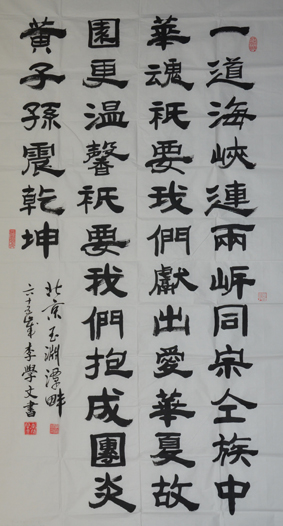 一道海峽連兩岍同宗仝族中
華魂祇要我們獻出愛華夏故
園更温馨祇要我們抱成團炎
黃子孫震乾坤
北京玉淵潭畔
六十五歲李學文書